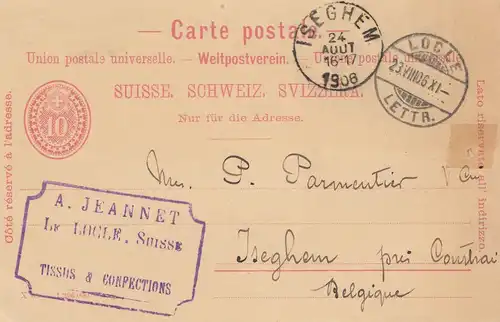 — Carte postale. —
Union postale universelle. — Weltpostverein. — Unione postale universale.
SUISSE. SCHWEIZ. SVIZZERA.
Nur für die Adresse.
Côté réservé à l'adresse.
Lato riservato all' indirizzo.
10
ISEGHEM
24
AOUT
16-17
1906
LOCLE
23.VIII.06.XI–
LETTR.
A. JEANNET
LE LOCLE, SUISSE
TISSUS & CONFECTIONS
P. Parmentier
Iseghem près Courtrai
Belgique